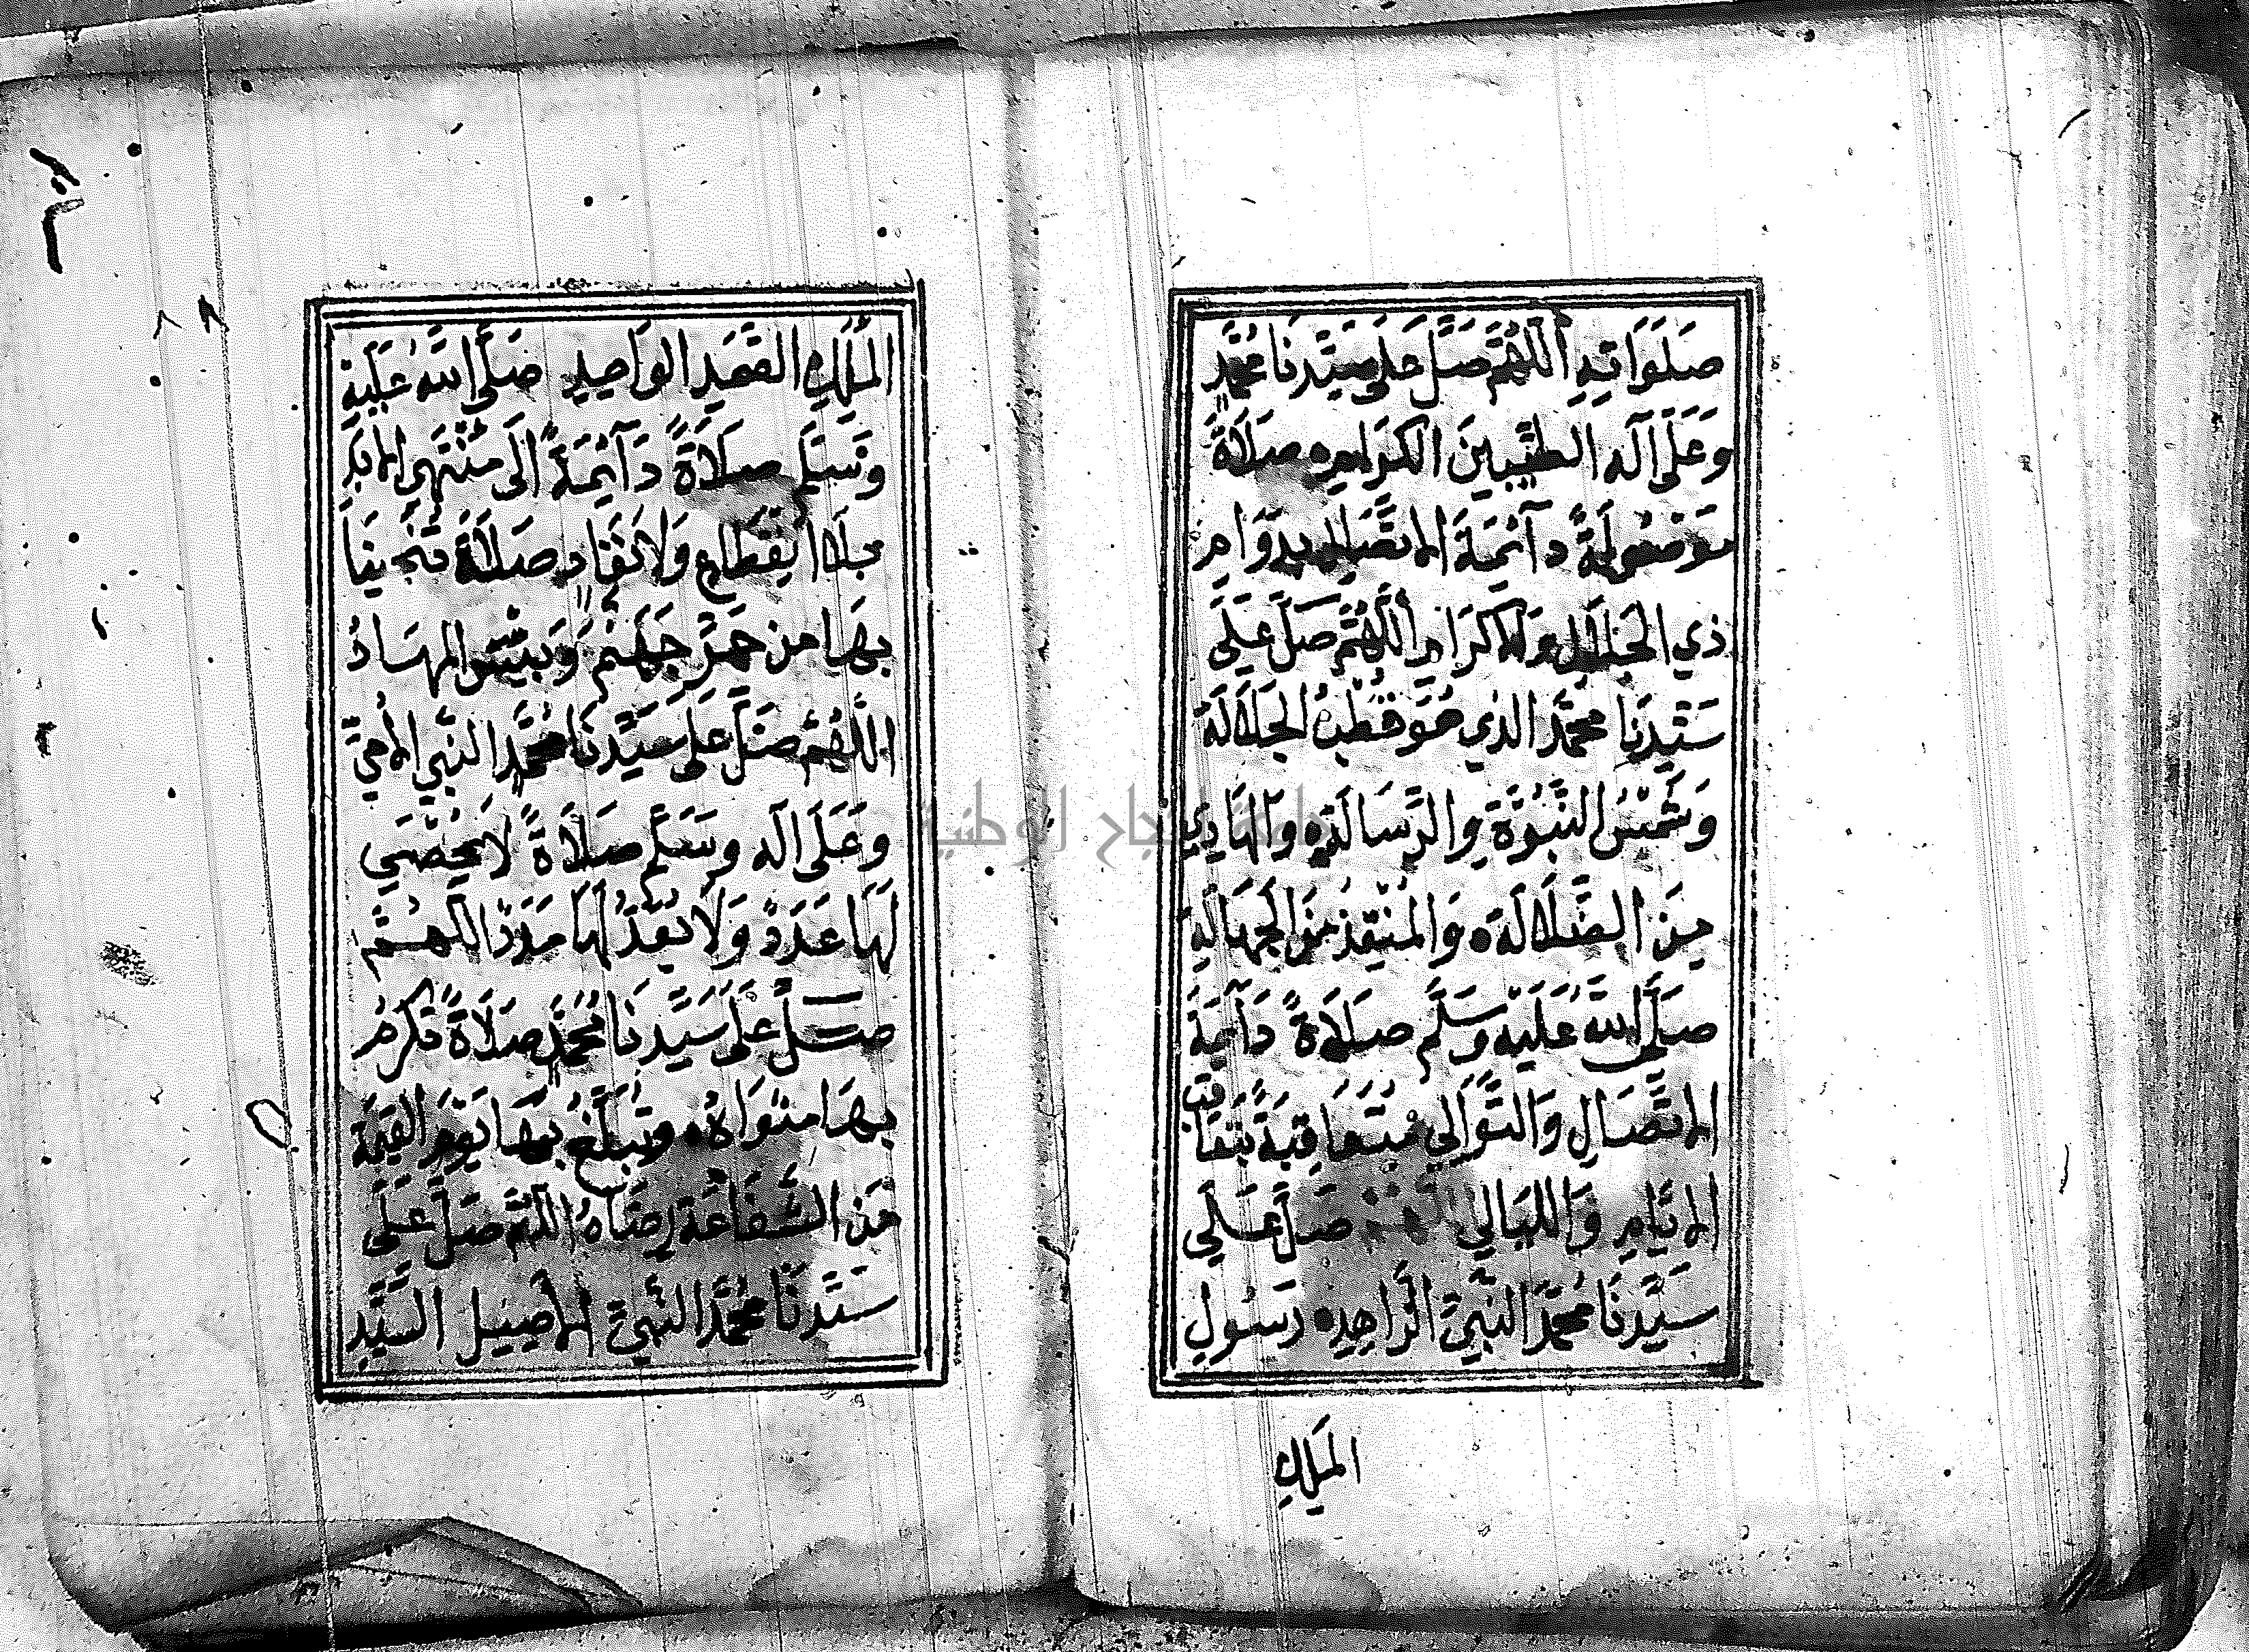 صَلَوَاتِهِ اَللّٰهُمَّ صَلِّ عَلَى سَيِّدِنَا مُحَمَّدٍ
وَعَلَى آلِهِ الطَّيِّبِينَ الكِرَامِ صَلَاةً
مَوْصُولَةً دَآئِمَةَ الاتِّصَالِ بِدَوَامِ
ذِي الجَلَالِ وَالاكرَامِ اَللّٰهُمَّ صَلِّ عَلَى
سَيِّدِنَا مُحَمَّدٍ الذي هُوَ قُطْبُ الجَلَالَةِ
وَشَمْسُ النُّبُوَّةِ وَالرِّسَالَةِ وَالهَادِي
مِنَ الضَّلَالَةِ وَالمُنْقِذُ مِنَ الجَهَالَةِ
صَلَّى اللهُ عَلَيْهِ وَسَلَّمَ صَلَاةً دَآئِمَةَ
الاتِّصَالِ وَالتَّوَالِي مُتَعَاقِبَةً بِتَعَاقُبِ
الايَّامِ وَالليَالِي اللهم صَلِّ عَلَى
سَيِّدِنَا مُحَمَّدٍ النَّبِيِّ الزَّاهِدِ رَسُولِ
المَلِكِ
المَلِكِ الصَّمَدِ الوَاحِدِ صَلَّى اللهُ عَلَيْهِ
وَسَلَّمَ صَلَاةً دَآئِمَةً اِلَى مُنْتَهَى الابَدِ
بِلَا انْقِطَاعٍ وَلَا نَفَادٍ صَلَاةً تُنْجِينَا
بِهَا مِن حَرِّ جَهَنَّمَ وَبِئْسَ المِهَادُ
اللّٰهُمَّ صَلِّ عَلَى سَيِّدِنَا مُحَمَّدٍ النَّبِيِّ الاُمِّيِّ
وَعَلَى آلِهِ وَسَلِّمْ صَلَاةً لَا يُحْصَى
لَهَا عَدَدٌ وَلَا يُعَدُّ لَهَا مَدَدٌ اللهُمَّ
صَلِّ عَلَى سَيِّدِنَا مُحَمَّدٍ صَلَاةً تُكْرِمُ
بِهَا مَثْوَاهُ وَتُبَلِّغُ بِهَا يَوْمَ القِيمَةِ
مِنَ الشَّفَاعَةِ رِضَاهُ اللهُمَّ صَلِّ عَلَى
سَيِّدِنَا مُحَمَّدٍ النَّبِيِّ الاَصِيلِ السَّيِّدِ
جامعة النجاح الوطنية